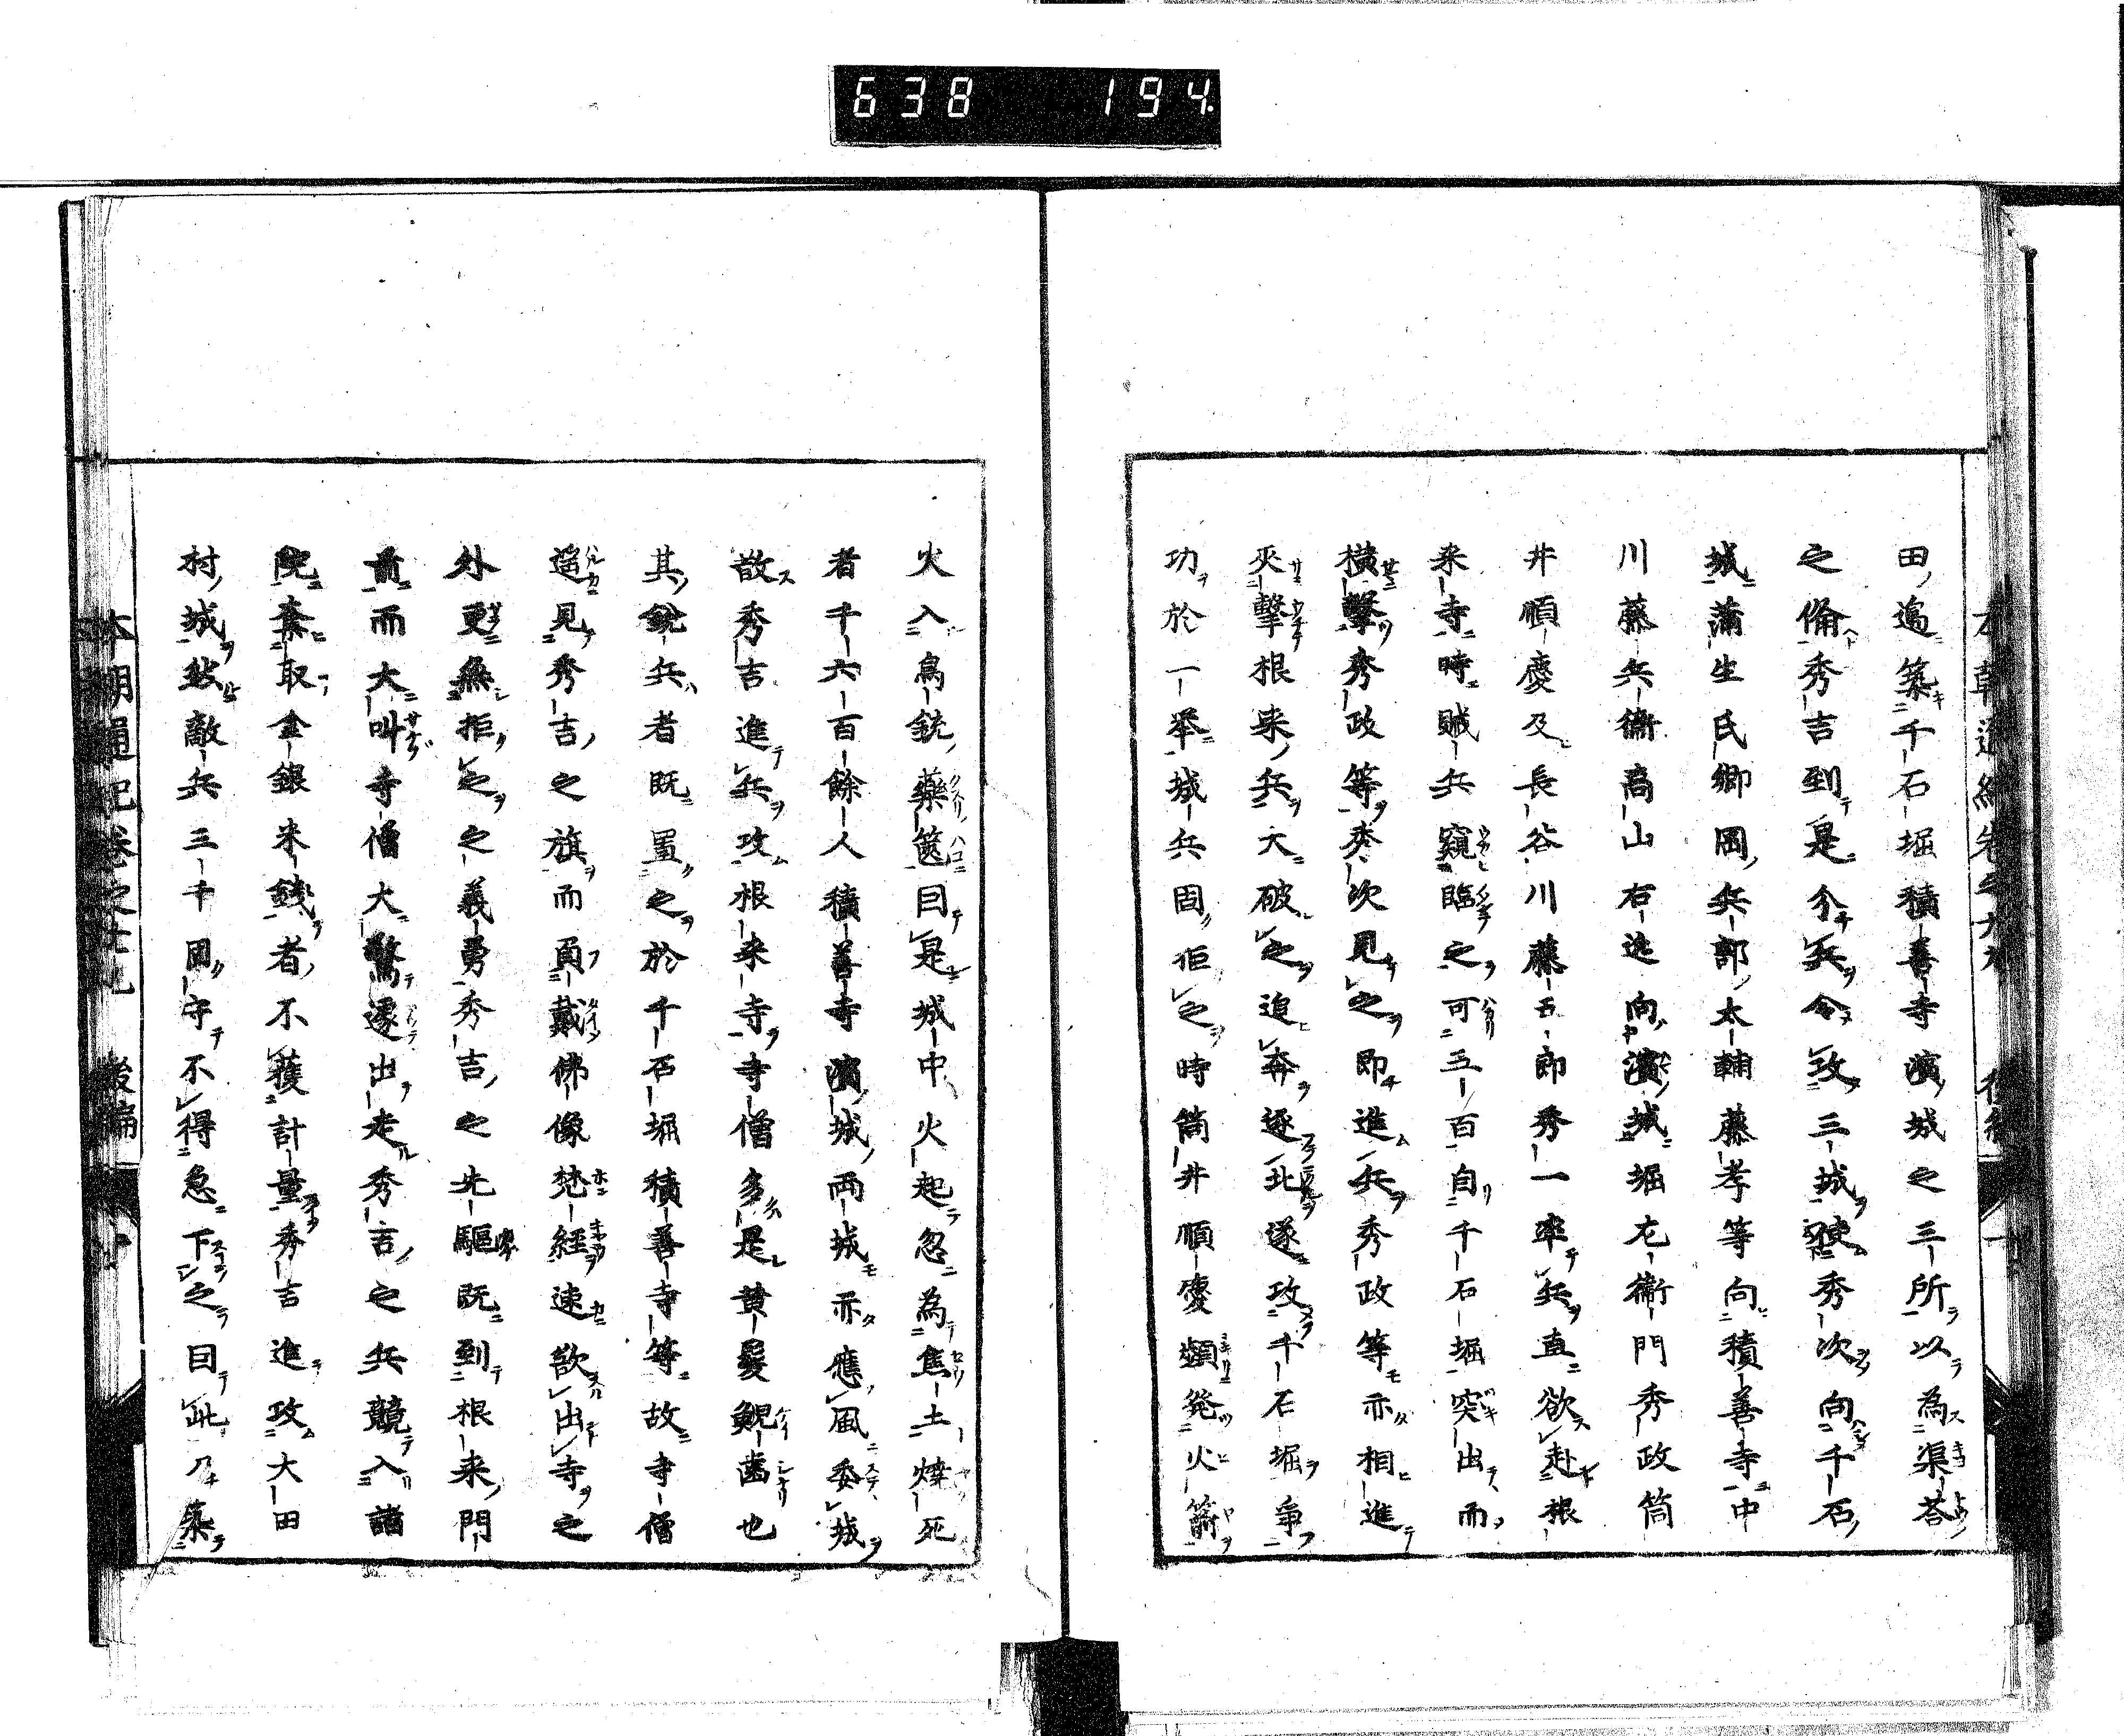 638 194.
田邉築千石堀積善寺濱城之三所以為渠荅
之俻秀吉到是分兵令攻三城使秀次向千石
城蒲生氏郷岡兵部太輔藤孝等向積善寺中
川藤兵衞高山右近向濱城堀尢衞門秀政筒
井順慶及長谷川藤五郎秀一率兵直欲赴根
来寺時賊兵窺臨之可五百自千石堀突出而
横撃秀政等秀次見之即進兵秀政等亦相進
夾擊根来兵大破之追奔逐北遂攻千石堀爭
功於一挙城兵固拒之時筒井順慶頻発火箭
火入鳥銃藥篋因是城中火起忽為焦土燒死
者千六百餘人積善寺濱城両城亦應風委城
散秀吉進兵攻根来寺寺僧多是黄髮鯢齒也
其銳兵者既置之於千石堀積善寺等故寺僧
遥見秀吉之旗而負戴佛像梵經速欲出寺之
外更無拒之之義勇秀吉之先驅既到根来門
前而大叫寺僧大驚遽出走秀吉之兵競入諸
院奪取金銀米錢者不獲計量秀吉進攻大田
村城然敵兵三千固守不得急下之因此乃築
本朝通紀巻之 後編